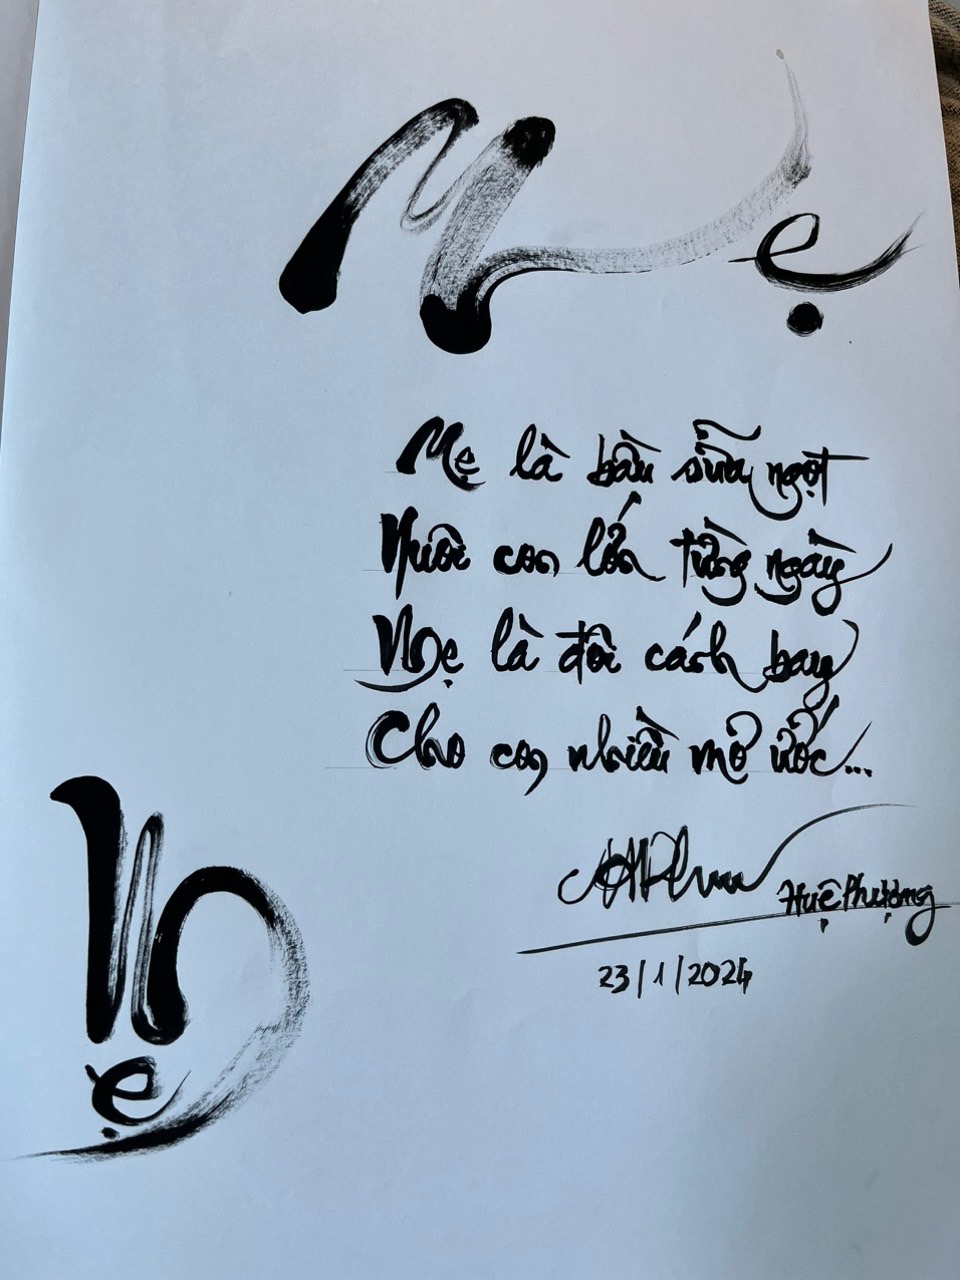 Mẹ
Mẹ là bầu sữa ngọt
Nuôi con lớn từng ngày
Mẹ là đôi cánh bay
Cho con nhiều mơ ước...
Huệ Phượng
23/1/2024
Mẹ